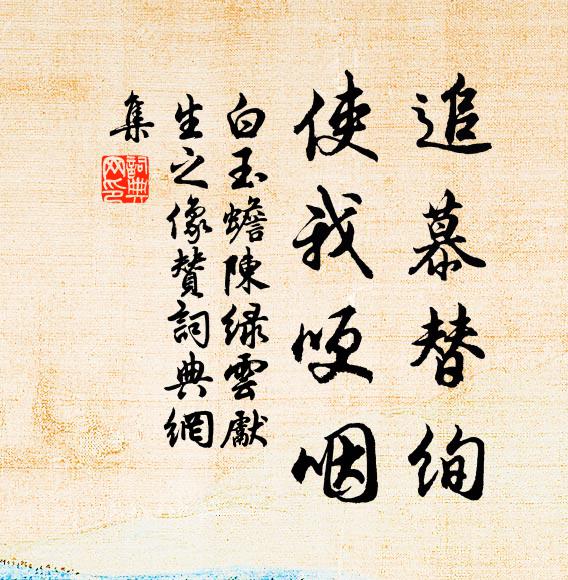 追慕替绚
使我哽咽
白玉蟾陳绿雲獻
生之像賛詞典網
集
詞典
网印